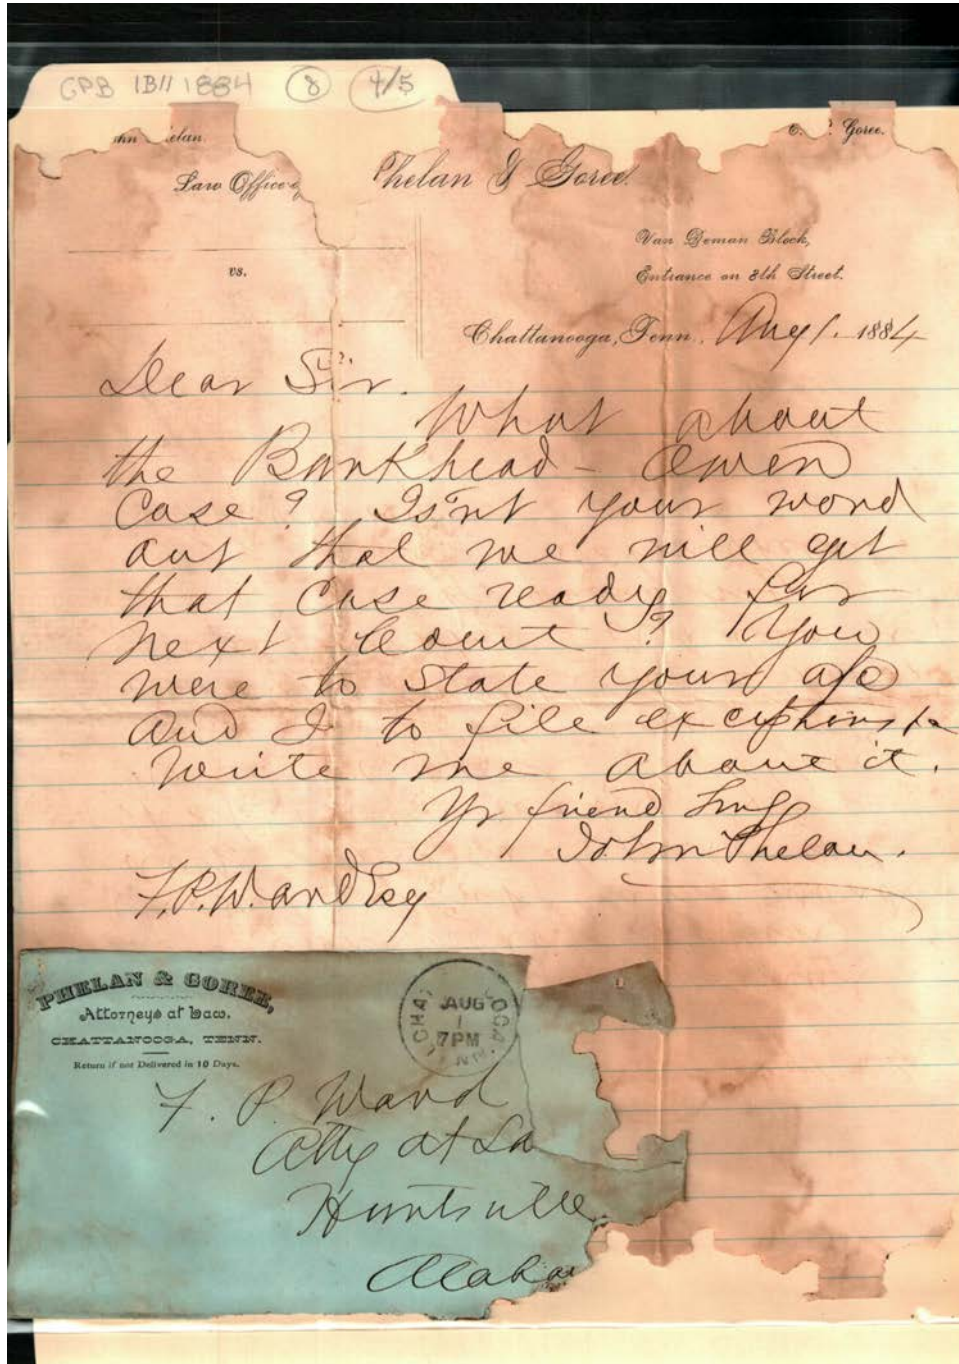 GPB 1B11 1884 8 4/5
Goree.
Law Office of Phelan & Goree.
Van Deman Block,
vs.
Entrance on 8th Street.
Chattanooga, Tenn. Aug 1. 1884
Dear Sir.
What about
the Bankhead - Owen
Case? Isn't your word
out that we will get
that case ready for
next Court? You
were to state your a/c
and I to file exceptions to
write me about it.
Yr friend truly
John Phelan.
F. P. Ward Esq
PHELAN & GOREE,
Attorneys at Law.
CHATTANOOGA, TENN.
Return if not Delivered in 10 Days.
AUG
1
7PM
F. P. Ward
Atty at La
Huntsville
Alaba